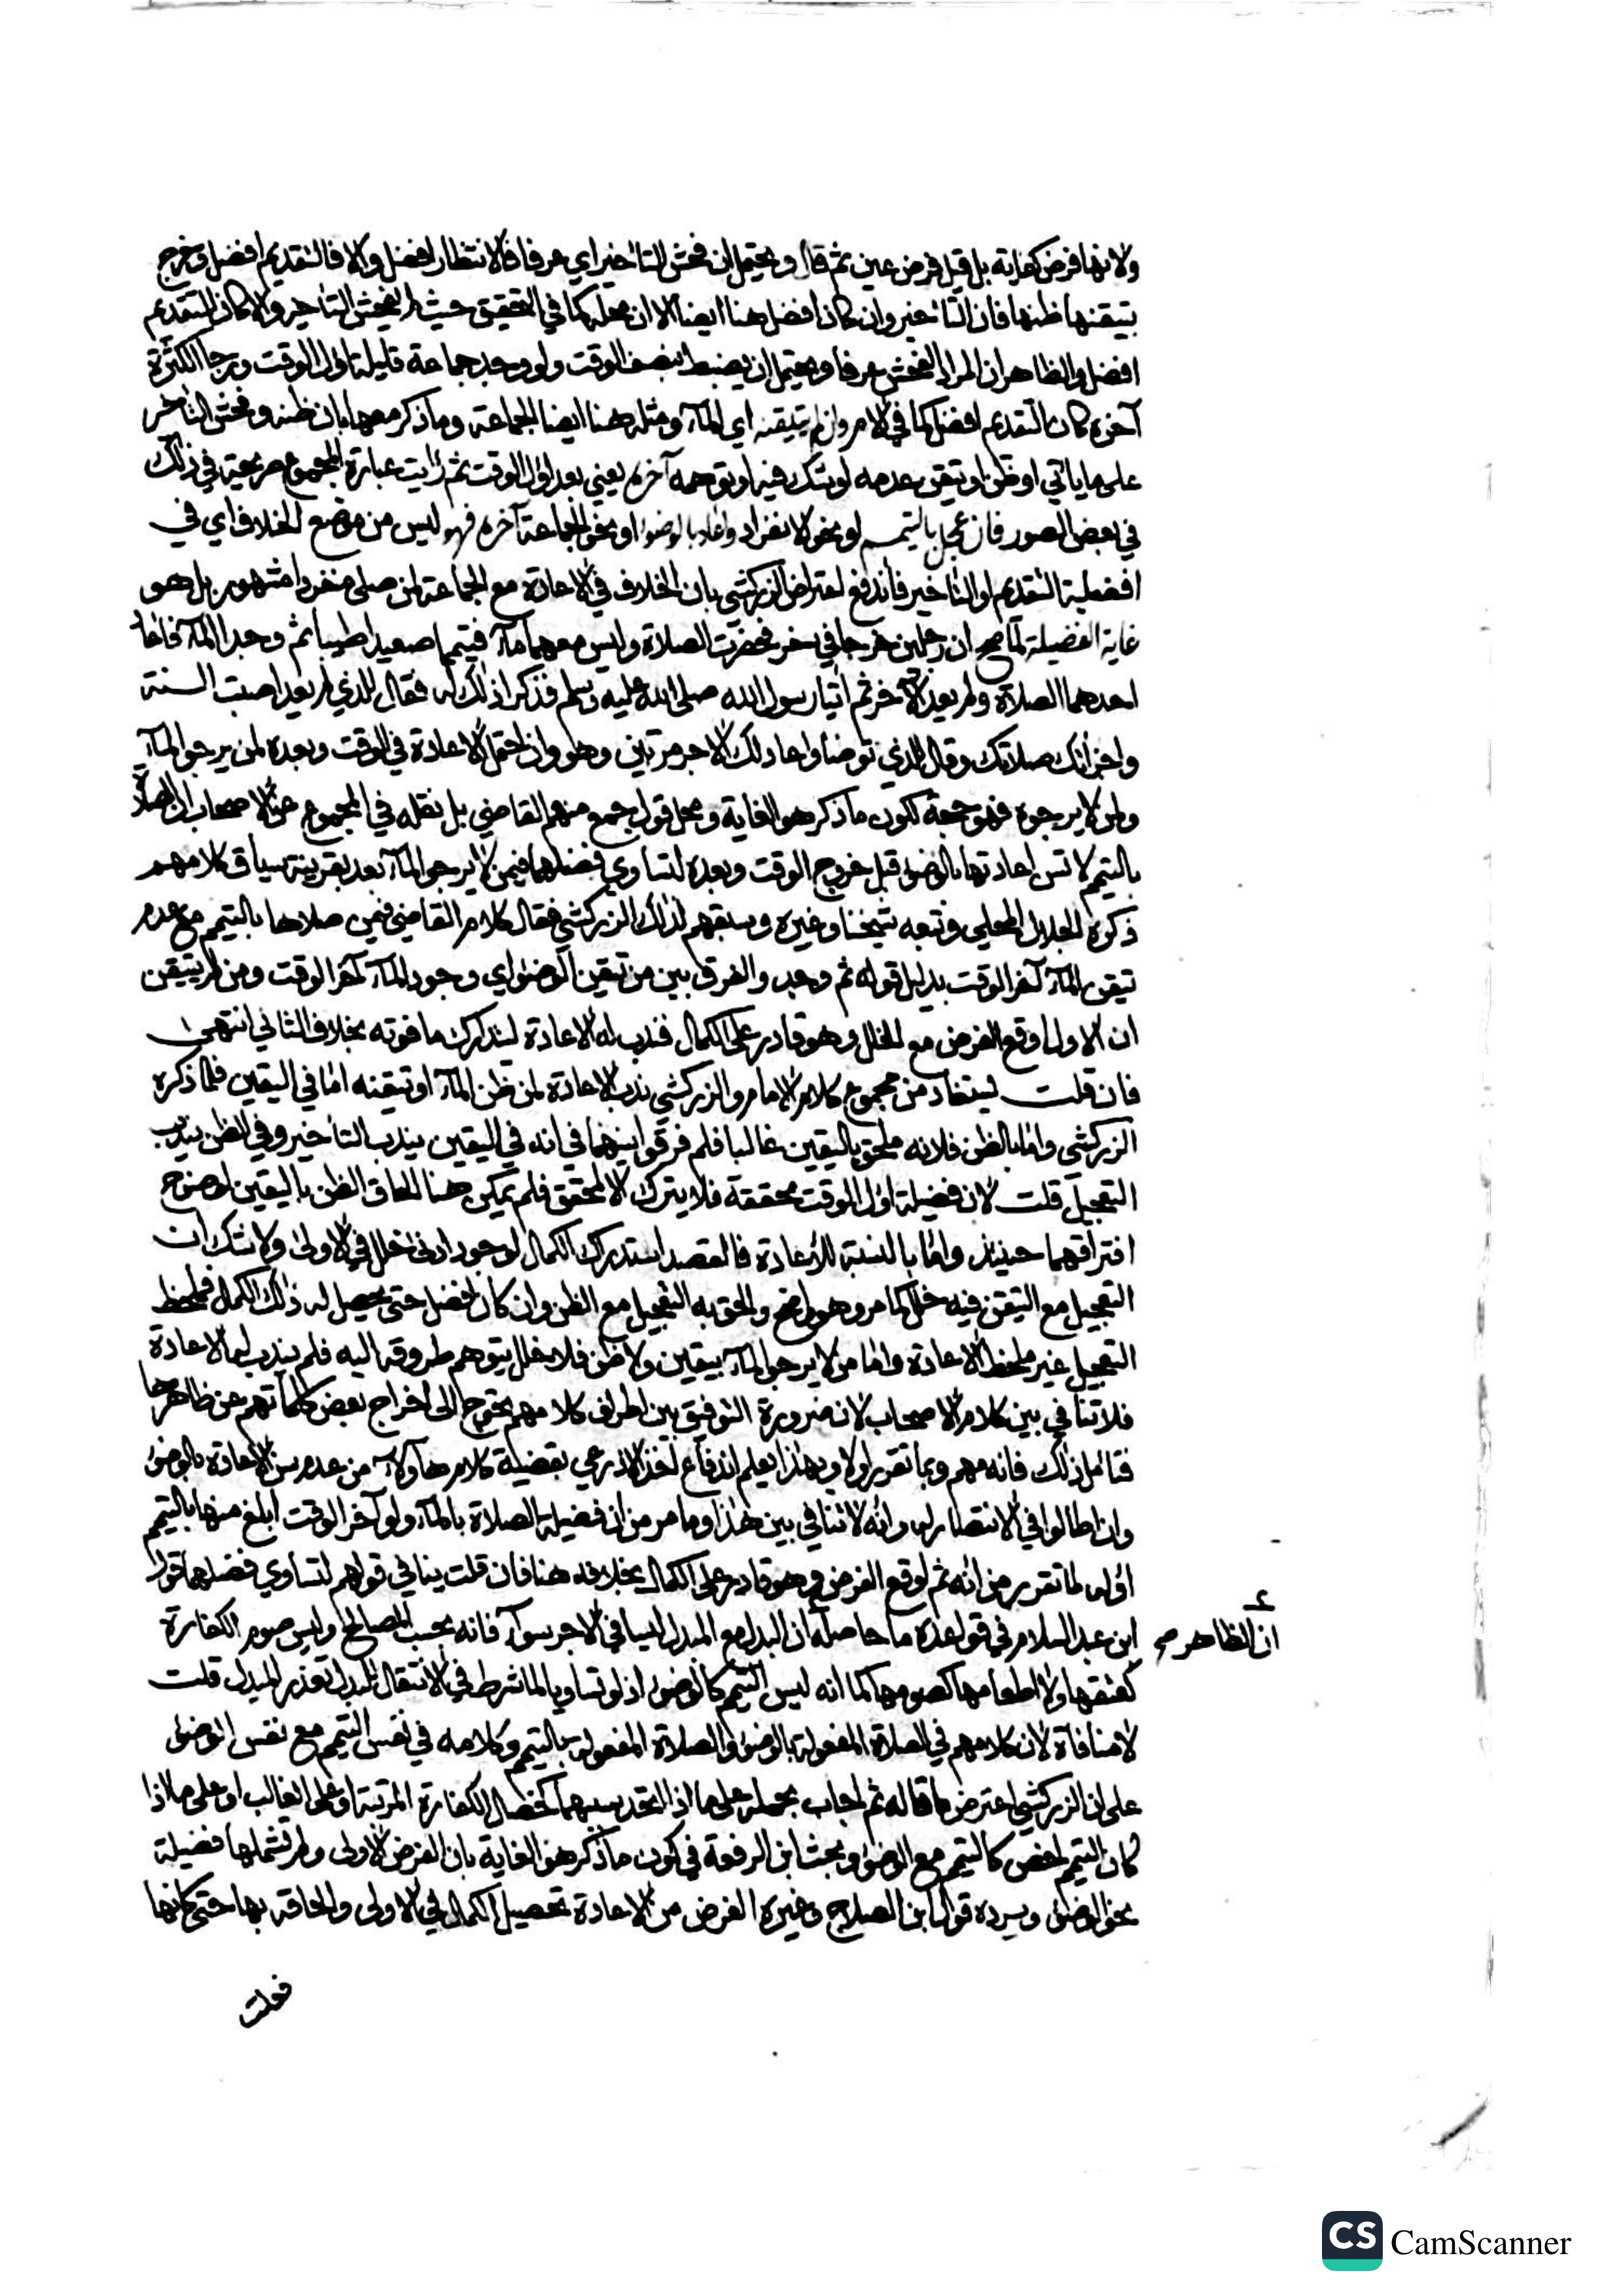 ولانها فرض كفاية بل قيل فرض عين ثم قال ويحتمل ان فحش التاخير اي عرفا فالانتظار افضل والا فالتقديم افضل وخرج
بتيقنها ظنها فان التاخير وان كان افضل هنا ايضا الا ان محله كما في التحقيق حيث لم يفحش التاخير والا كان التقديم
افضل والظاهر ان المراد الفحش عرفا ويحتمل ان يضبط بنصف الوقت ولو وجد جماعة قليلة اول الوقت ورجا الكثرة
آخره كان التقديم افضل كما في الامر وان لم يتيقنه اي المآء ومثله هنا ايضا الجماعة وما ذكر معها بان ظنه وفحش التأخر
على ما ياتي او ظن او تيقن عدمه لو شك فيه او توهمه آخره يعني بعد اول الوقت ثم رايت عبارة المجموع صريحة في ذلك
في بعض الصور فان عجل بالتيمم او نحو الانفراد واعاد بالوضوء او نحو الجماعة آخره فهو ليس من موضع الخلاف اي في
افضلية التقديم او التاخير فأندفع اعتراض الزركشي بان الخلاف في الاعادة مع الجماعة لمن صلى منفردا مشهور بل هو
غاية الفضيلة لما صح ان رجلين خرجا في سفر فحضرت الصلاة وليس معهما مآء فتيمما صعيدا طيبا ثم وجدا المآء فاعاد
احدهما الصلاة ولم يعد الآخر ثم اتيا رسول الله صلى الله عليه وسلم فذكرا ذلك له فقال للذي لم يعد اصبت السنة
واجزأتك صلاتك وقال للذي توضا واعاد لك الاجر مرتين وهو وان احتمل الاعادة في الوقت وبعده لمن يرجو المآء
ولمن لا يرجوه فهو حجة لكون ما ذكر هو الغاية ومحل قول جمع منهم القاضي بل نقله في المجموع عن الاصحاب ان الصلاة
بالتيمم لا تسن اعادتها بالوضوء قبل خروج الوقت وبعده لتساوي فضلهما فيمن لا يرجو المآء بعد بقرينة سياق كلامهم
ذكره الجلال المحلي وتبعه شيخنا وغيره وسبقهم لذلك الزركشي فقال كلام القاضي فيمن صلاها بالتيمم مع عدم
تيقن المآء آخر الوقت بدليل قوله ثم وجد والفرق بين من تيقن الوضوء اي وجود المآء آخر الوقت ومن لم يتيقن
ان الاول اوقع الفرض مع الخلل وهو قادر على الكمال فندب له الاعادة لتدارك ما فوته بخلاف الثاني انتهى
فان قلت يستفاد من مجموع كلام الامام والزركشي ندب الاعادة لمن ظن المآء او تيقنه اما في اليقين فلما ذكره
الزركشي واما بالظن فلانه ملحق باليقين غالبا فلم فرقوا بينهما في انه في اليقين يندب التاخير وفي الظن يندب
التعجيل قلت لان فضيلة اول الوقت محققة فلا يترك الا لمحقق فلم يمكن هنا الحاق الظن باليقين لوضوح
افتراقهما حينئذ واما بالنسبة للاعادة فالقصد استدراك الكمال لوجود ادنى خلل في الاولى ولا شك ان
التعجيل مع التيقن فيه خلل كما مر وهو واضح والحق به التعجيل مع الظن وان كان افضل حتى يحصل له ذلك الكمال فملحظ
التعجيل غير ملحظ الاعادة واما من لا يرجو المآء بيقين ولا ظن فلا خلل يتوهم طروقه اليه فلم يندب له الاعادة
فلا تنافي بين كلام الاصحاب لان ضرورة التوفيق بين اطراف كلامهم يحوج الى اخراج بعض كلماتهم عن ظاهرها
فتامل ذلك فانه مهم وبما تقرر اولا وبهذا يعلم اندفاع اخذ الاذرعي بقضية كلام هاولآء من عدم سن الاعادة بالوضوء
وان اطالوا في الانتصار له وانه لا تنافي بين هذا وما مر من ان فضيلة الصلاة بالمآء ولو آخر الوقت ابلغ منها بالتيمم
اوله لما تقرر من انه ثم اوقع الفرض وهو قادر على الكمال بخلافه هنا فان قلت ينافي قولهم لتساوي فضلهما قول
ابن عبد السلام في قواعده ما حاصله ان البدل مع المبدل ليسا في الاجر سوآء فانه بحسب المصالح وليس صوم الكفارة
ان الظاهر صح
كعتقها ولا اطعامها كصومها كما انه ليس التيمم كالوضوء اذ لو تساويا لما شرط في الانتقال للبدل تعذر المبدل قلت
لا منافاة لان كلامهم في الصلاة المفعولة بالوضوء والصلاة المفعولة بالتيمم وكلامه في نفس التيمم مع نفس الوضوء
على ان الزركشي اعترض ما قاله ثم اجاب بحمله على ما اذا اتحد سببهما كخصال الكفارة المرتبة او على الغالب او على ما اذا
كان التيمم اخص كالتيمم مع الوضوء وبحث ابن الرفعة في كون ما ذكر هو الغاية بان الفرض الاولى ولم تشملها فضيلة
نحو الوضوء ويرده قول ابن الصلاح وغيره الغرض من الاعادة تحصيل الكمال في الاولى والحاقه بها حتى كانها
فعلت
CS CamScanner